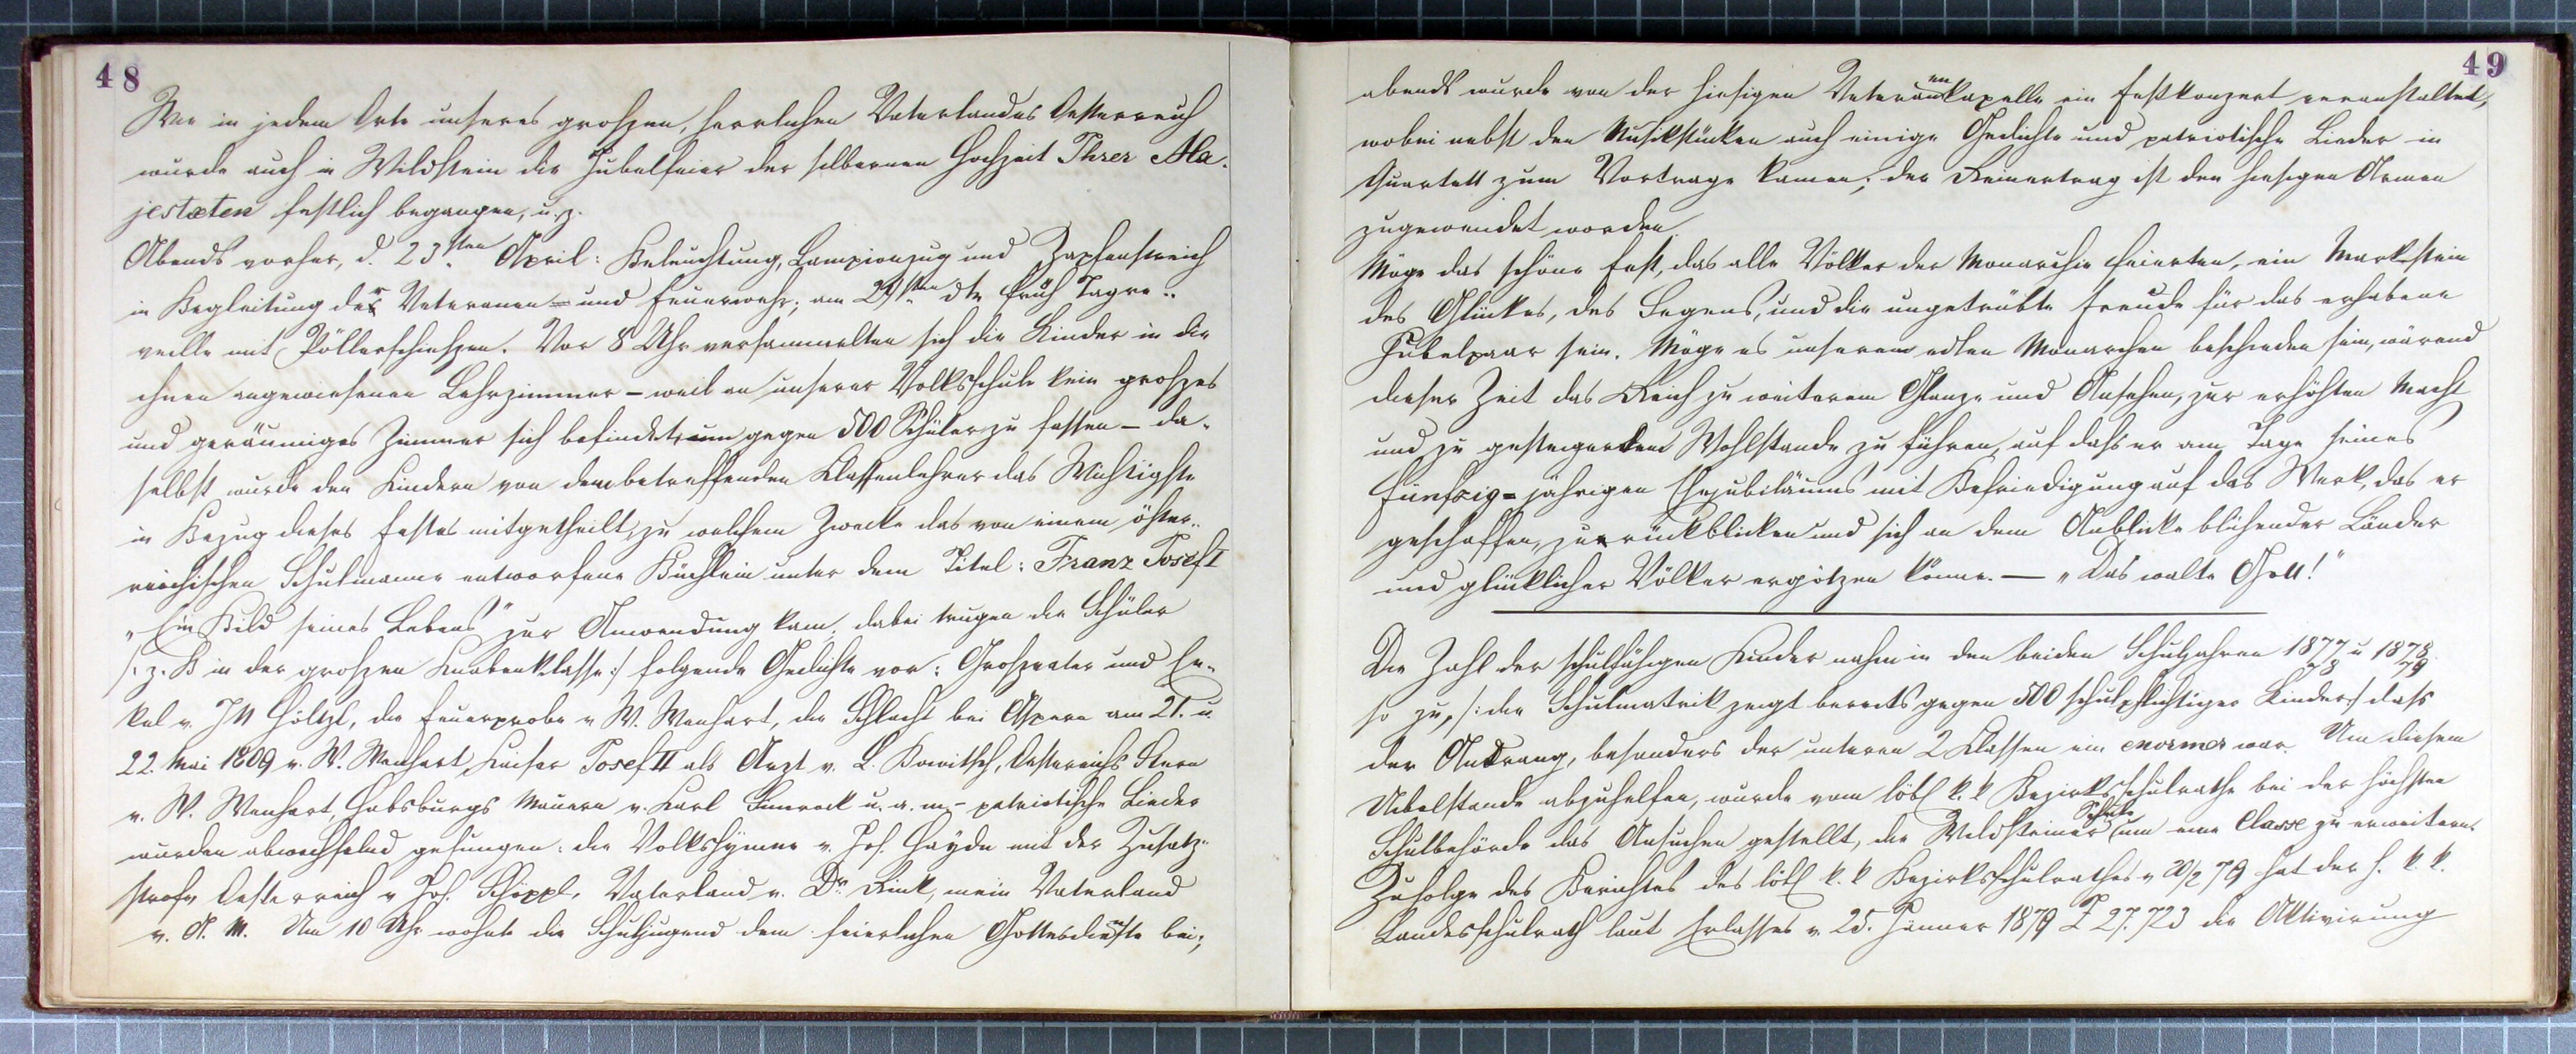 48
Wie in jedem Orte unseres groszen, herrlichen Vaterlandes Oesterreich
wurde auch in Wildstein die Jubelfeier der silbernen Hochzeit Ihrer Ma-
jestæten festlich begangen, u. z.
Abends vorher, d. 23sten April: Beleuchtung, Lampionzug und Zapfenstreich
in Begleitung der Veteranen- und Feuerwehr; am 24sten dto früh Tagre-
veille mit Pöllerschieszen. Vor 8 Uhr versammelten sich die Kinder in die
ihnen angewiesenen Lehrzimmer – weil an unserer Volksschule kein groszes
und geräumiges Zimmer sich befindet, um gegen 500 Schüler zu fassen – da-
selbst wurde den Kindern von dem betreffenden Klassenlehrer das Wichtigste
in Bezug dieses Festes mitgetheilt, zu welchem Zwecke das von einem öster-
reichischen Schulmanne entworfene Büchlein unter dem Titel: Franz Josef I
„Ein Bild seines Lebens" zur Anwendung kam; dabei trugen die Schüler
/: z. B in der groszen Knabenklasse :/ folgende Gedichte vor: Groszvater und En-
kel v. J N Höltzl, die Feuerprobe v W. Wenhart, die Schlacht bei Aspern am 21. u.
22. Mai 1809 v. W. Wenhart, Kaiser Josef II als Arzt v. L. Bowitsch, Oestereichs Stern
v. W. Wenhart, Habsburgs Mauern v. Karl Simrock u. a. m. – patriotische Lieder
wurden abwechselnd gesungen: die Volkshymne v. Jos. Haydn mit der Zusatz-
strofe Oesterreich v Jos. Schöppl, Vaterland v. Dr Rink, mein Vaterland
v. A. M. Um 10 Uhr wohnte die Schuljugend dem feierlichen Gottesdienste bei;
49
abends wurde von der hiesigen Veteranenkapelle ein Festkonzert veranstaltet,
wobei nebst den Musikstücken auch einige Gedichte und patriotische Lieder in
Quartett zum Vortrage kamen; der Reinertrag ist den hiesigen Armen
zugewendet worden.
Möge das schöne Fest, das alle Völker der Monarchie feierten, ein Markstein
des Glückes, des Segens, und die ungetrübte Freude für das erhabene
Jubelpaar sein. Möge es unserem edlen Monarchen beschieden sein, wärend
dieser Zeit das Reich zu weiterem Glanze und Ansehen, zur erhöhten Macht
und zu gesteigertem Wohlstande zu führen, auf dass er am Tage seines
fünfzig-jährigen Ehejubiläums mit Befriedigung auf das Werk, das er
geschaffen, zurückblicken und sich an dem Anblicke blühender Länder
und glücklicher Völker ergötzen könne. — „Das walte Gott!"
Die Zahl der schulfähigen Kinder nahm in den beiden Schuljahren 1877/78 u 1878/79
so zu, /: die Schulmatrik zeigt bereits gegen 500 schulpflichtiger Kinder :/ dass
der Andrang, besonders der unteren 2 Klassen ein enormer war. Um diesem
Uibelstande abzuhelfen, wurde vom löbl k. k Bezirksschulrathe bei der höchsten
Schulbehörde das Ansuchen gestellt, die Wildsteiner Schule um eine Classe zu erweitern.
Zufolge des Berichtes des löbl k. k Bezirksschulrathes v 20/2 79 hat der h. k. k.
Landesschulrath laut Erlasses v. 25. Jänner 1879 Z 27.723 die Aktivirung